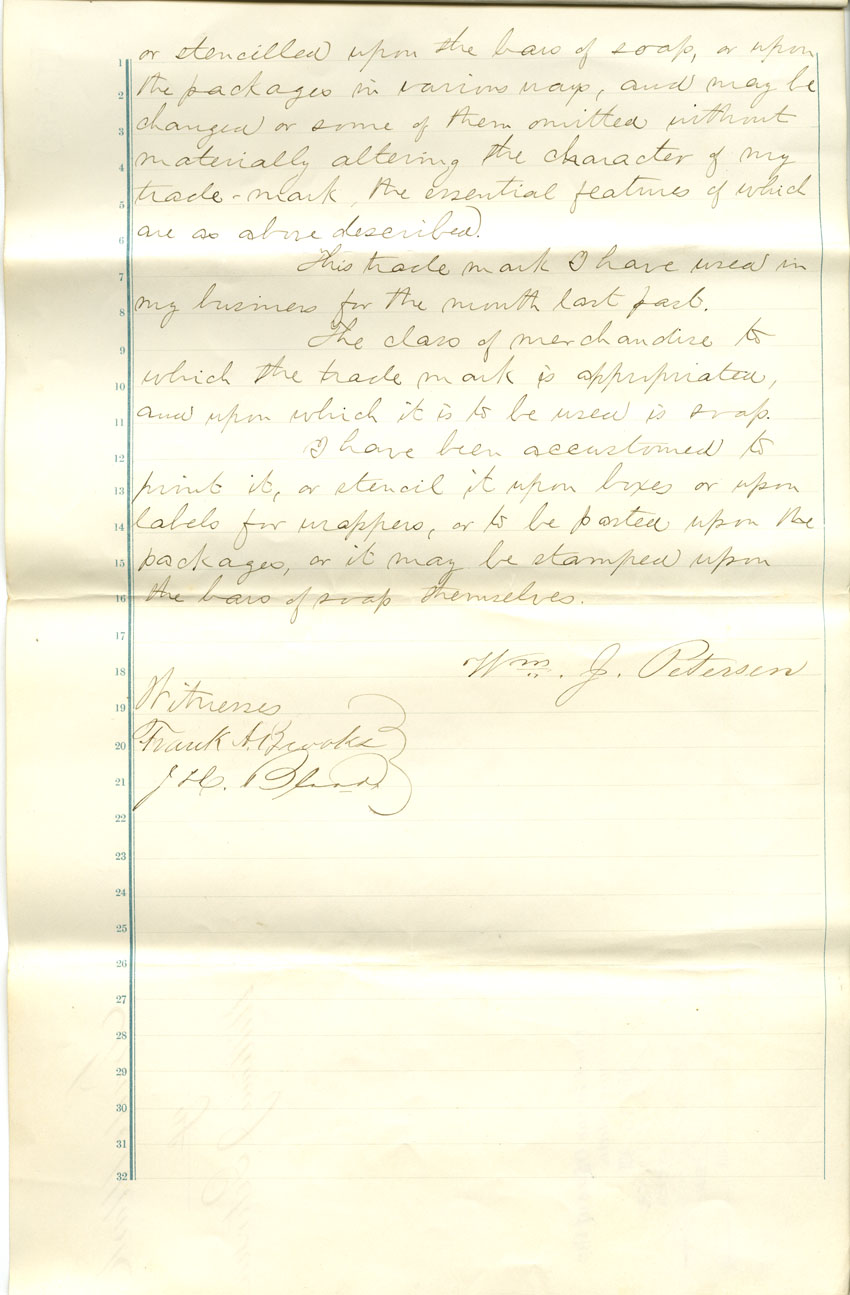 1 or stencilled upon the bars of soap, or upon
2 the packages in various ways, and may be
3 changed or some of them omitted without
4 materially altering the character of my
5 trade-mark, the essential features of which
6 are as above described.
7 This trade mark I have used in
8 my business for the month last past.
9 The class of merchandise to
10 which the trade mark is appropriated,
11 and upon which it is to be used is soap.
12 I have been accustomed to
13 print it, or stencil it upon boxes or upon
14 labels for wrappers, or to be pasted upon the
15 packages, or it may be stamped upon
16 the bars of soap themselves.
17
18 Wm. J. Petersen
19 Witnesses
20 Frank A. Brooks
21 J. H. Blood
22
23
24
25
26
27
28
29
30
31
32